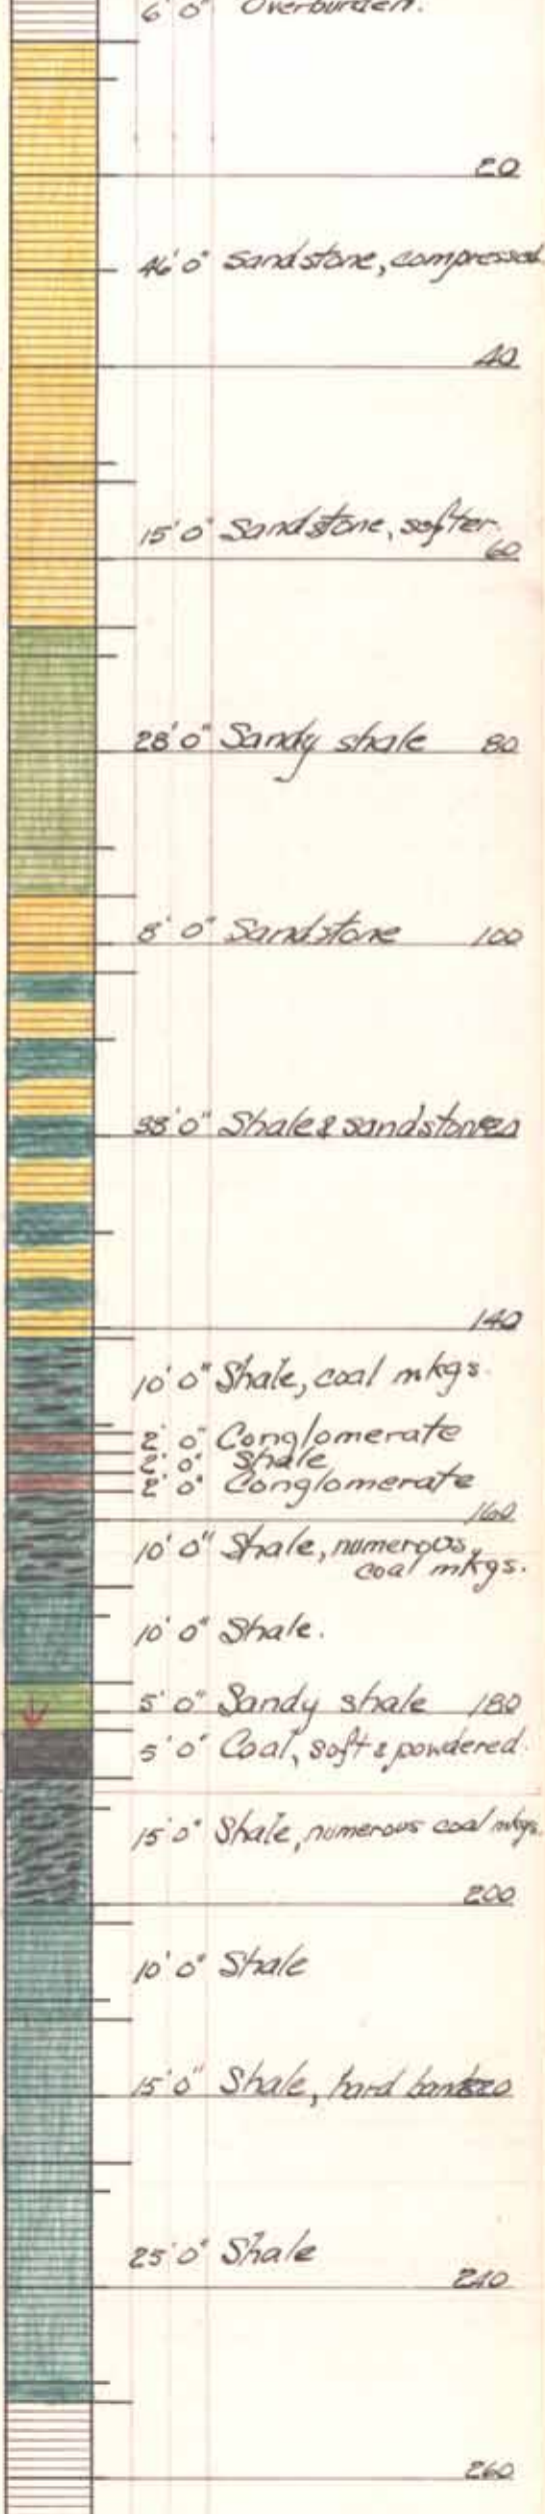 6' 0" Overburden.
20
46' 0" Sandstone, compressed.
40
15' 0" Sandstone, softer.
60
28' 0" Sandy shale 80
8' 0" Sandstone 100
38' 0" Shale & sandstone 120
140
10' 0" Shale, coal mkgs.
2' 0" Conglomerate
2' 0" Shale
2' 0" Conglomerate
160
10' 0" Shale, numerous
coal mkgs.
10' 0" Shale.
5' 0" Sandy shale 180
5' 0" Coal, soft & powdered.
15' 0" Shale, numerous coal mkgs.
200
10' 0" Shale
15' 0" Shale, hard bands 220
25' 0" Shale
240
260